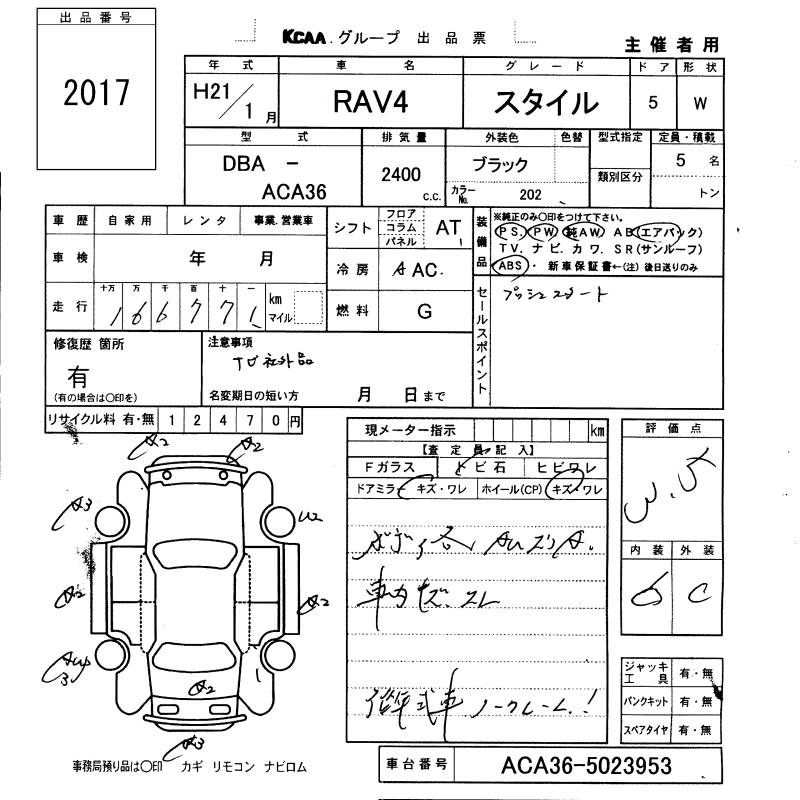 出品番号
2017
KCAA.グループ 出品票
主催者用
年式 車名 グレード ドア 形状
H21/1月 RAV4 スタイル 5 W
型式 排気量 外装色 色替 型式指定 定員・積載
DBA - ACA36 2400 c.c. ブラック 5名
カラーNo. 202 類別区分 トン
車歴 自家用 レンタ 事業.営業車
シフト フロア コラム パネル AT
装備品
※純正のみ○印をつけて下さい。
PS. PW 純AW AB(エアバック)
TV. ナビ. カワ. SR(サンルーフ)
ABS・ 新車保証書←(注) 後日送りのみ
車検 年 月
冷房 AAC.
走行 十万 万 千 百 十 一
166771 km マイル
燃料 G
セールスポイント
プッシュスタート
修復歴 箇所
有
(有の場合は○印を)
注意事項
社外品
名変期日の短い方 月 日まで
リサイクル料 有・無 12470円
現メーター指示 km
【査定員記入】
Fガラス トビ石 ヒビワレ
ドアミラー キズ・ワレ ホイール(CP) キズ・ワレ
A.
車内キズ.スレ
低年式車 ノークレーム.!
評価点
3.5
内装 外装
C
A2
A2
A3
U2
A2
A2
3
A2
A3
ジャッキ工具 有・無
パンクキット 有・無
スペアタイヤ 有・無
事務局預り品は○印 カギ リモコン ナビロム
車台番号 ACA36-5023953